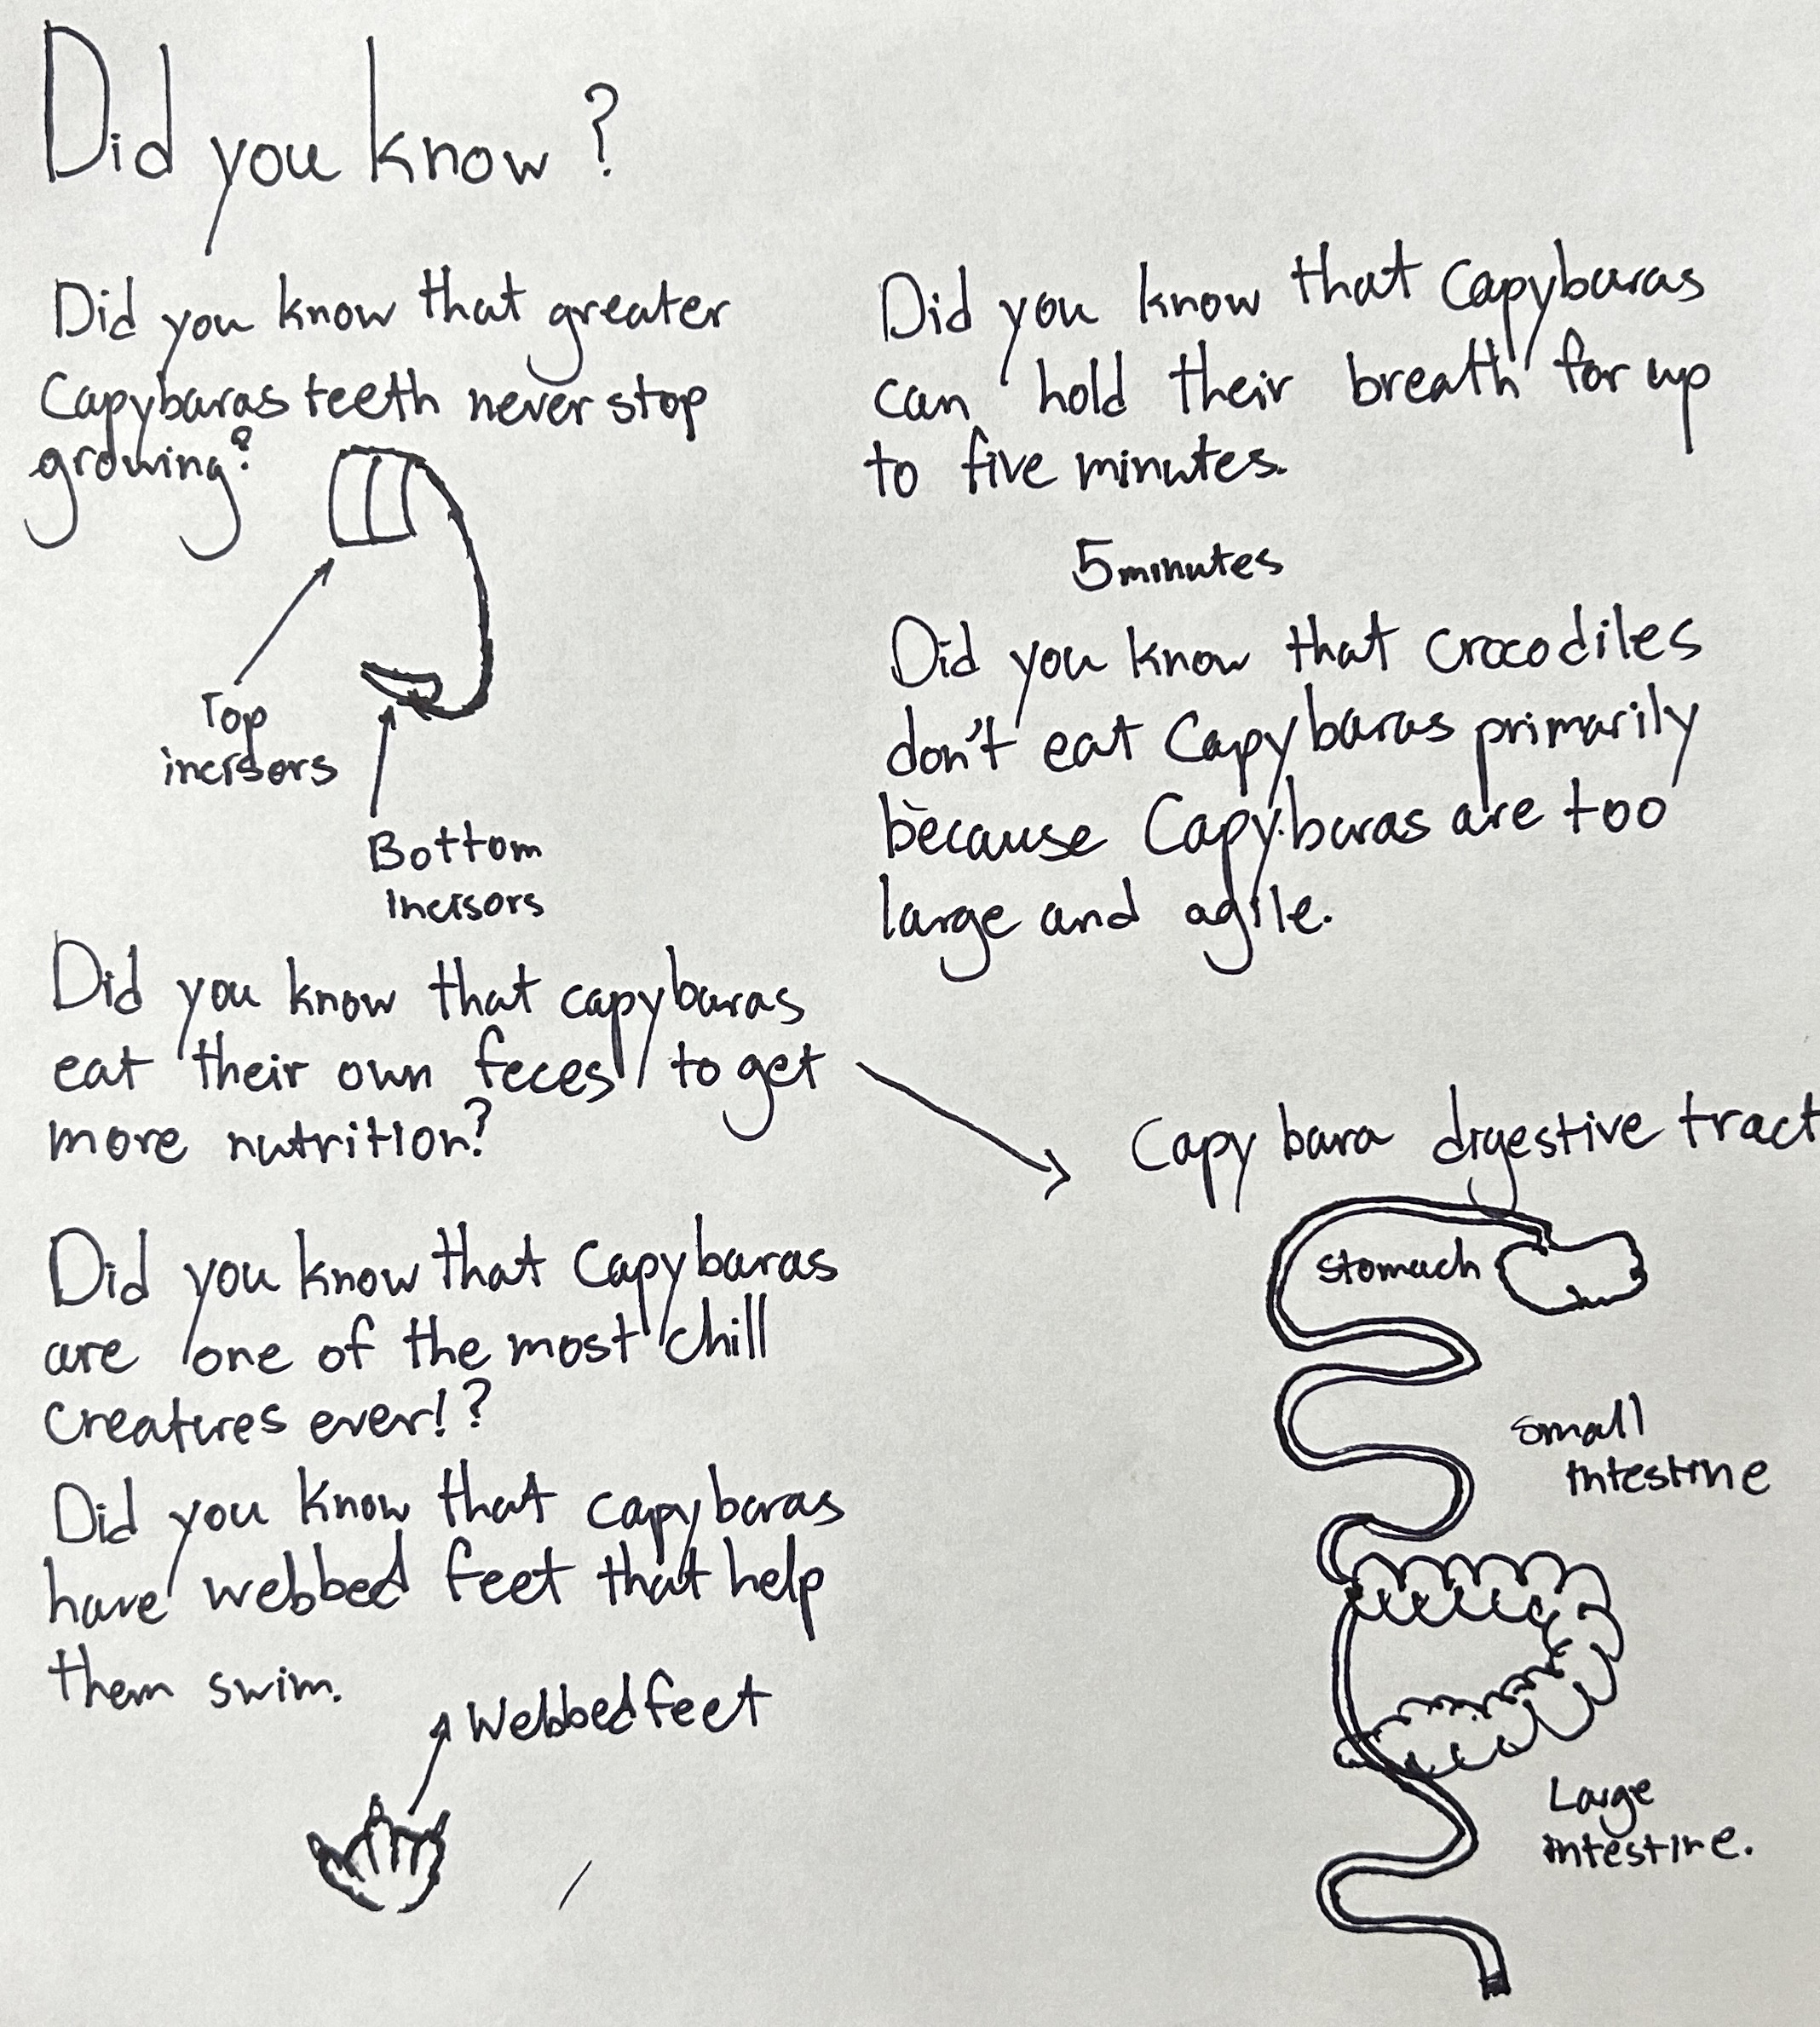 Did you know?
Did you know that greater
Capybaras teeth never stop
growing?
Top
incisors
Bottom
Incisors
Did you know that capybaras
eat their own feces to get
more nutrition?
Did you know that Capybaras
are one of the most chill
creatures ever!?
Did you know that capybaras
have webbed feet that help
them swim.
Webbed feet
Did you know that Capybaras
can hold their breath for up
to five minutes.
5 minutes
Did you know that crocodiles
don't eat Capybaras primarily
because Capybaras are too
large and agile.
Capybara digestive tract
Stomach
Small
Intestine
Large
intestine.